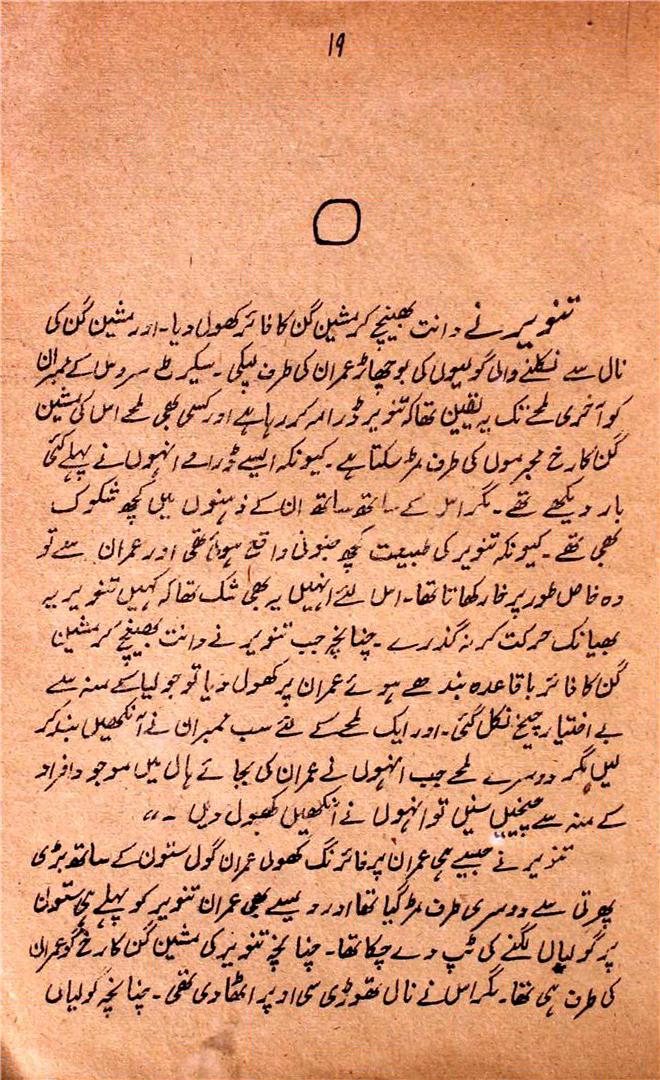 ۱۹
تنویر نے دانت بھینچ کر مشین گن کا فائر کھول دیا۔ اور مشین گن کی
نال سے نکلنے والی گولیوں کی بوچھاڑ عمران کی طرف لپکی۔ سیکرٹ سروس کے ممبران
کو آخری لمحے تک یہ یقین تھا کہ تنویر ڈرامہ کر رہا ہے اور کسی بھی لمحے اس کی مشین
گن کا رخ مجرموں کی طرف مڑ سکتا ہے۔ کیونکہ ایسے ڈرامے انہوں نے پہلے کئی
بار دیکھے تھے۔ مگر اس کے ساتھ ساتھ ان کے ذہنوں میں کچھ شکوک
بھی تھے۔ کیونکہ تنویر کی طبیعت کچھ جنونی واقع ہوئی تھی اور عمران سے تو
وہ خاص طور پر خار کھاتا تھا۔ اس لئے انہیں یہ بھی شک تھا کہ کہیں تنویر یہ
بھیانک حرکت کر نہ گذرے۔ چنانچہ جب تنویر نے دانت بھینچ کر مشین
گن کا فائر باقاعدہ بندھے ہوئے عمران پر کھول دیا تو جولیا کے منہ سے
بے اختیار چیخ نکل گئی۔ اور ایک لمحے کے لئے سب ممبران نے آنکھیں بند کر
لیں مگر دوسرے لمحے جب انہوں نے عمران کی بجائے ہال میں موجود افراد
کے منہ سے چیخیں سنیں تو انہوں نے آنکھیں کھول دیں ۔،،
تنویر نے جیسے ہی عمران پر فائرنگ کھولی عمران گول ستون کے ساتھ بڑی
پھرتی سے دوسری طرف مڑ گیا تھا اور ویسے بھی عمران تنویر کو پہلے ہی ستون
پر گولیاں لگنے کی ٹپ دے چکا تھا۔ چنانچہ تنویر کی مشین گن کا رخ گو عمران
کی طرف ہی تھا۔ مگر اس نے نال تھوڑی سی اوپر اٹھا دی تھی۔ چنانچہ گولیاں